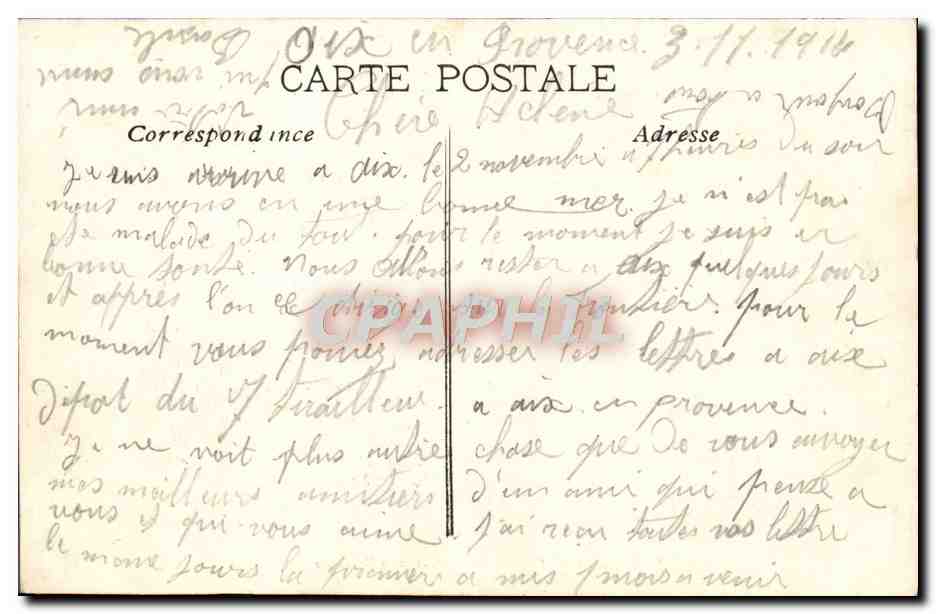 Aix en Provence 3.11.1914
CARTE POSTALE
Chère Hélène
Correspondance
Adresse
Je suis arrivé a Aix. le 2 novembre a heures du soir
nous avons eu une bonne mer. je n'est pas
ete malade du tout. pour le moment je suis en
bonne sante. Nous allons rester a Aix quelques jours
et apprès l'on ce dirige sur la frontière. pour le
moment vous pouvez adresser les lettres a aix
Dépot du 7 tirailleur. a aix. en provence.
Je ne voit plus autre chose que De vous envoyer
mes meilleurs amitiers d'un ami qui pense a
vous et qui vous aime j'ai reçu toutes vos lettre
le même jours la premier a mis 1 mois a venir
Bonjour a tous
votre ami
qui vous aime
CPAPHIL